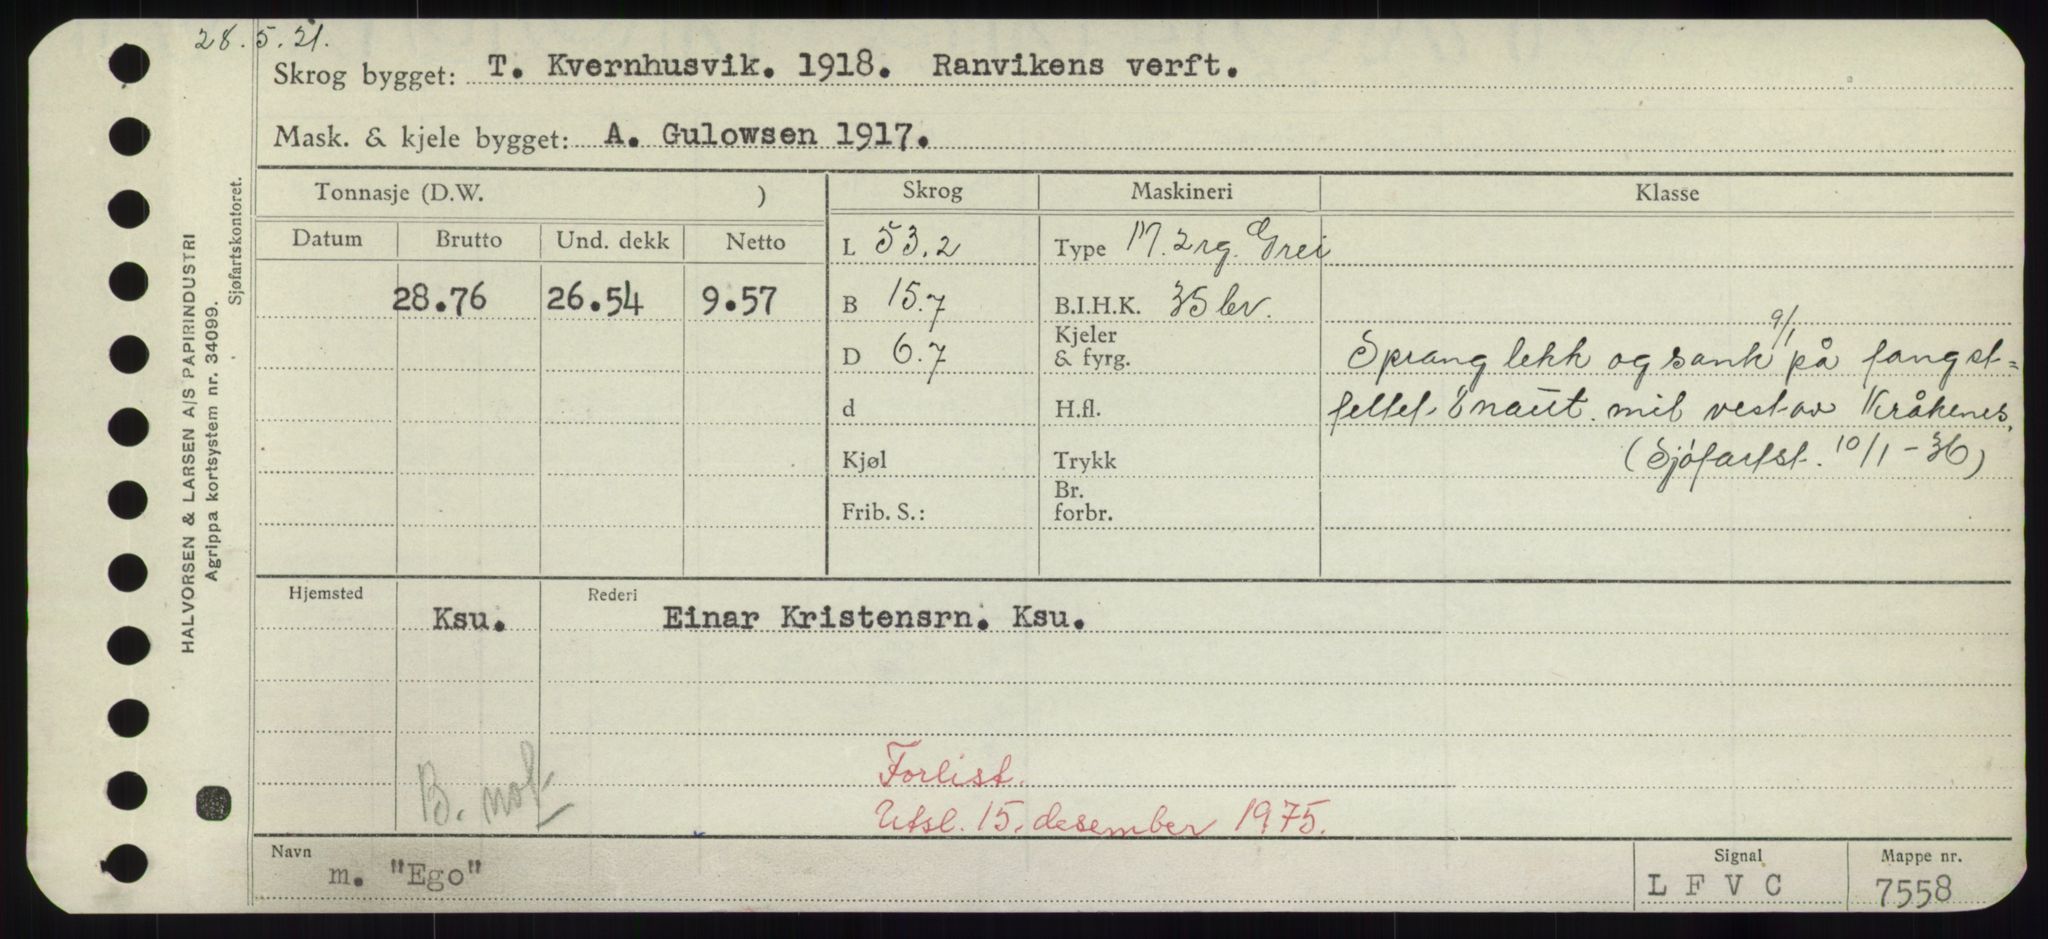 28.5.21.
Skrog bygget: T. Kvernhusvik. 1918. Ranvikens verft.
Mask. & kjele bygget: A. Gulowsen 1917.
HALVORSEN & LARSEN A/S PAPIRINDUSTRI
Agrippa kortsystem nr. 34099.
Sjøfartskontoret.
Tonnasje (D.W. ) Skrog Maskineri Klasse
Datum Brutto Und. dekk Netto
L 53.2 Type M. 2 rg. Grei
28.76 26.54 9.57 B 15.7 B.I.H.K. 35 br.
D 6.7 Kjeler & fyrg.
Sprang lekk og sank 9/1 på fangst=
d H.fl.
feltet. naut. mil vest av Kråkenes.
Kjøl Trykk
(Sjøfartst. 10/1-36)
Frib. S.: Br. forbr.
Hjemsted Rederi
Ksu. Einar Kristensrn. Ksu.
Forlist.
B. not
Utsl. 15. desember 1975.
Navn Signal Mappe nr.
m. "Ego" L F V C 7558